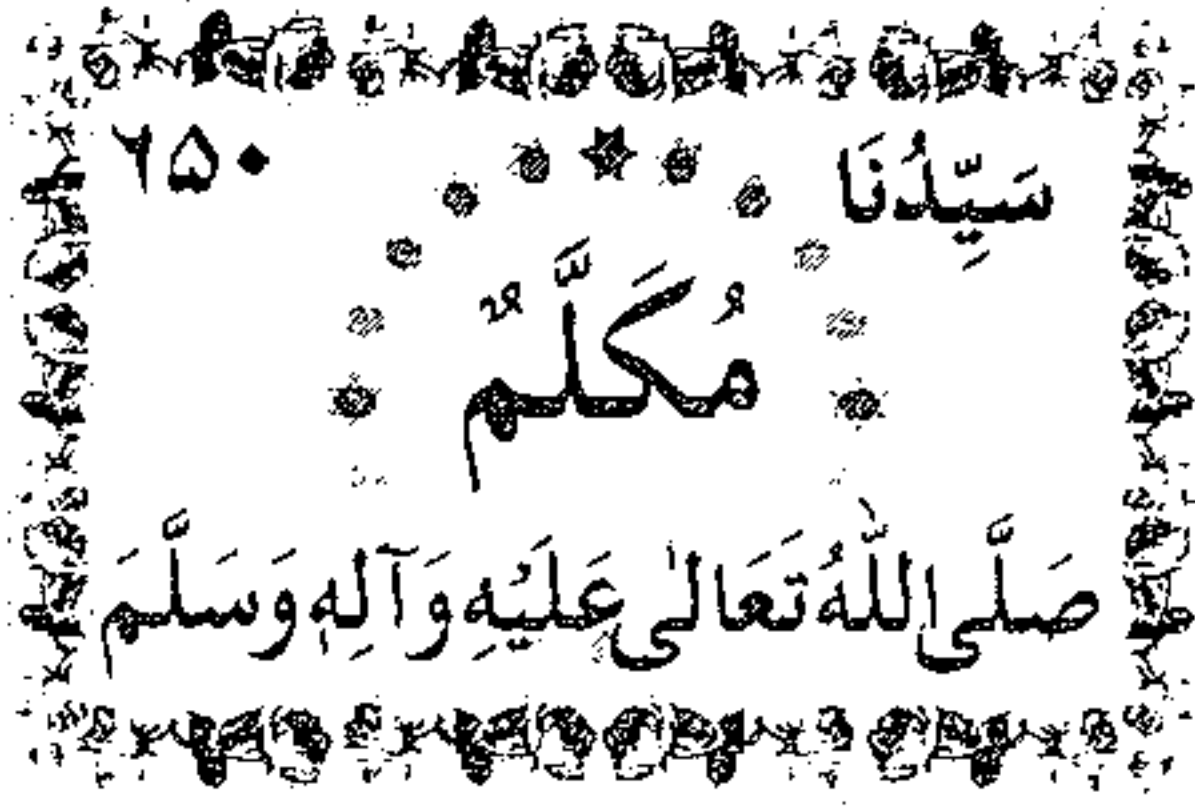 سَيِّدُنَا ۶۵۰
مُكَلَّمٌ
صَلَّى اللّٰهُ تَعَالٰى عَلَيْهِ وَآلِهٖ وَسَلَّمَ